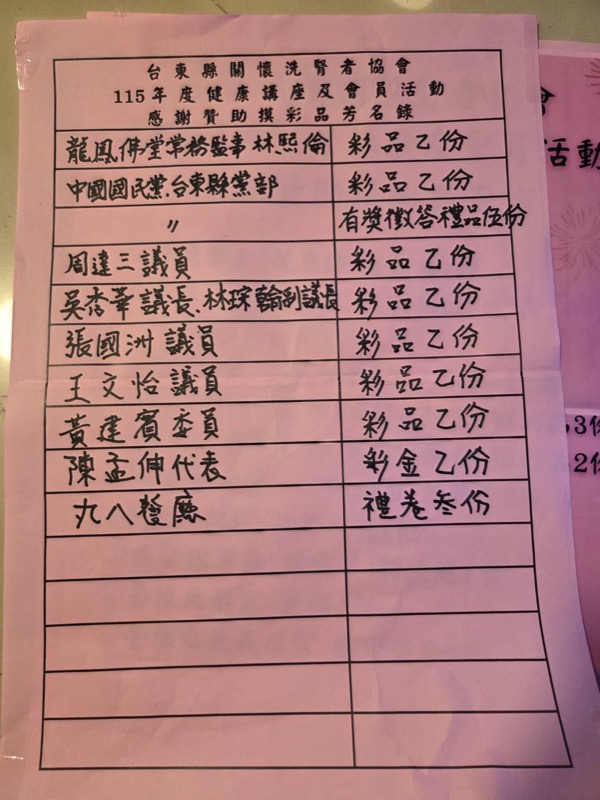 台東縣關懷洗腎者協會
115年度健康講座及會員活動
感謝贊助摸彩品芳名錄
龍鳳佛堂常務監事林熙倫 彩品乙份
中國國民黨台東縣黨部 彩品乙份
〃 有獎徵答禮品伍份
周達三議員 彩品乙份
吳秀華議長、林琮翰副議長 彩品乙份
張國洲議員 彩品乙份
王文怡議員 彩品乙份
黃建賓委員 彩品乙份
陳孟伸代表 彩金乙份
丸八餐廳 禮卷叁份
會
活動
3份
2份